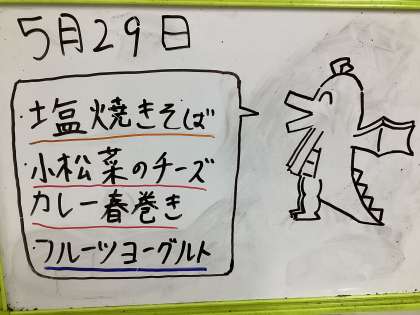 5月29日
塩焼きそば
小松菜のチーズ
カレー春巻き
フルーツヨーグルト